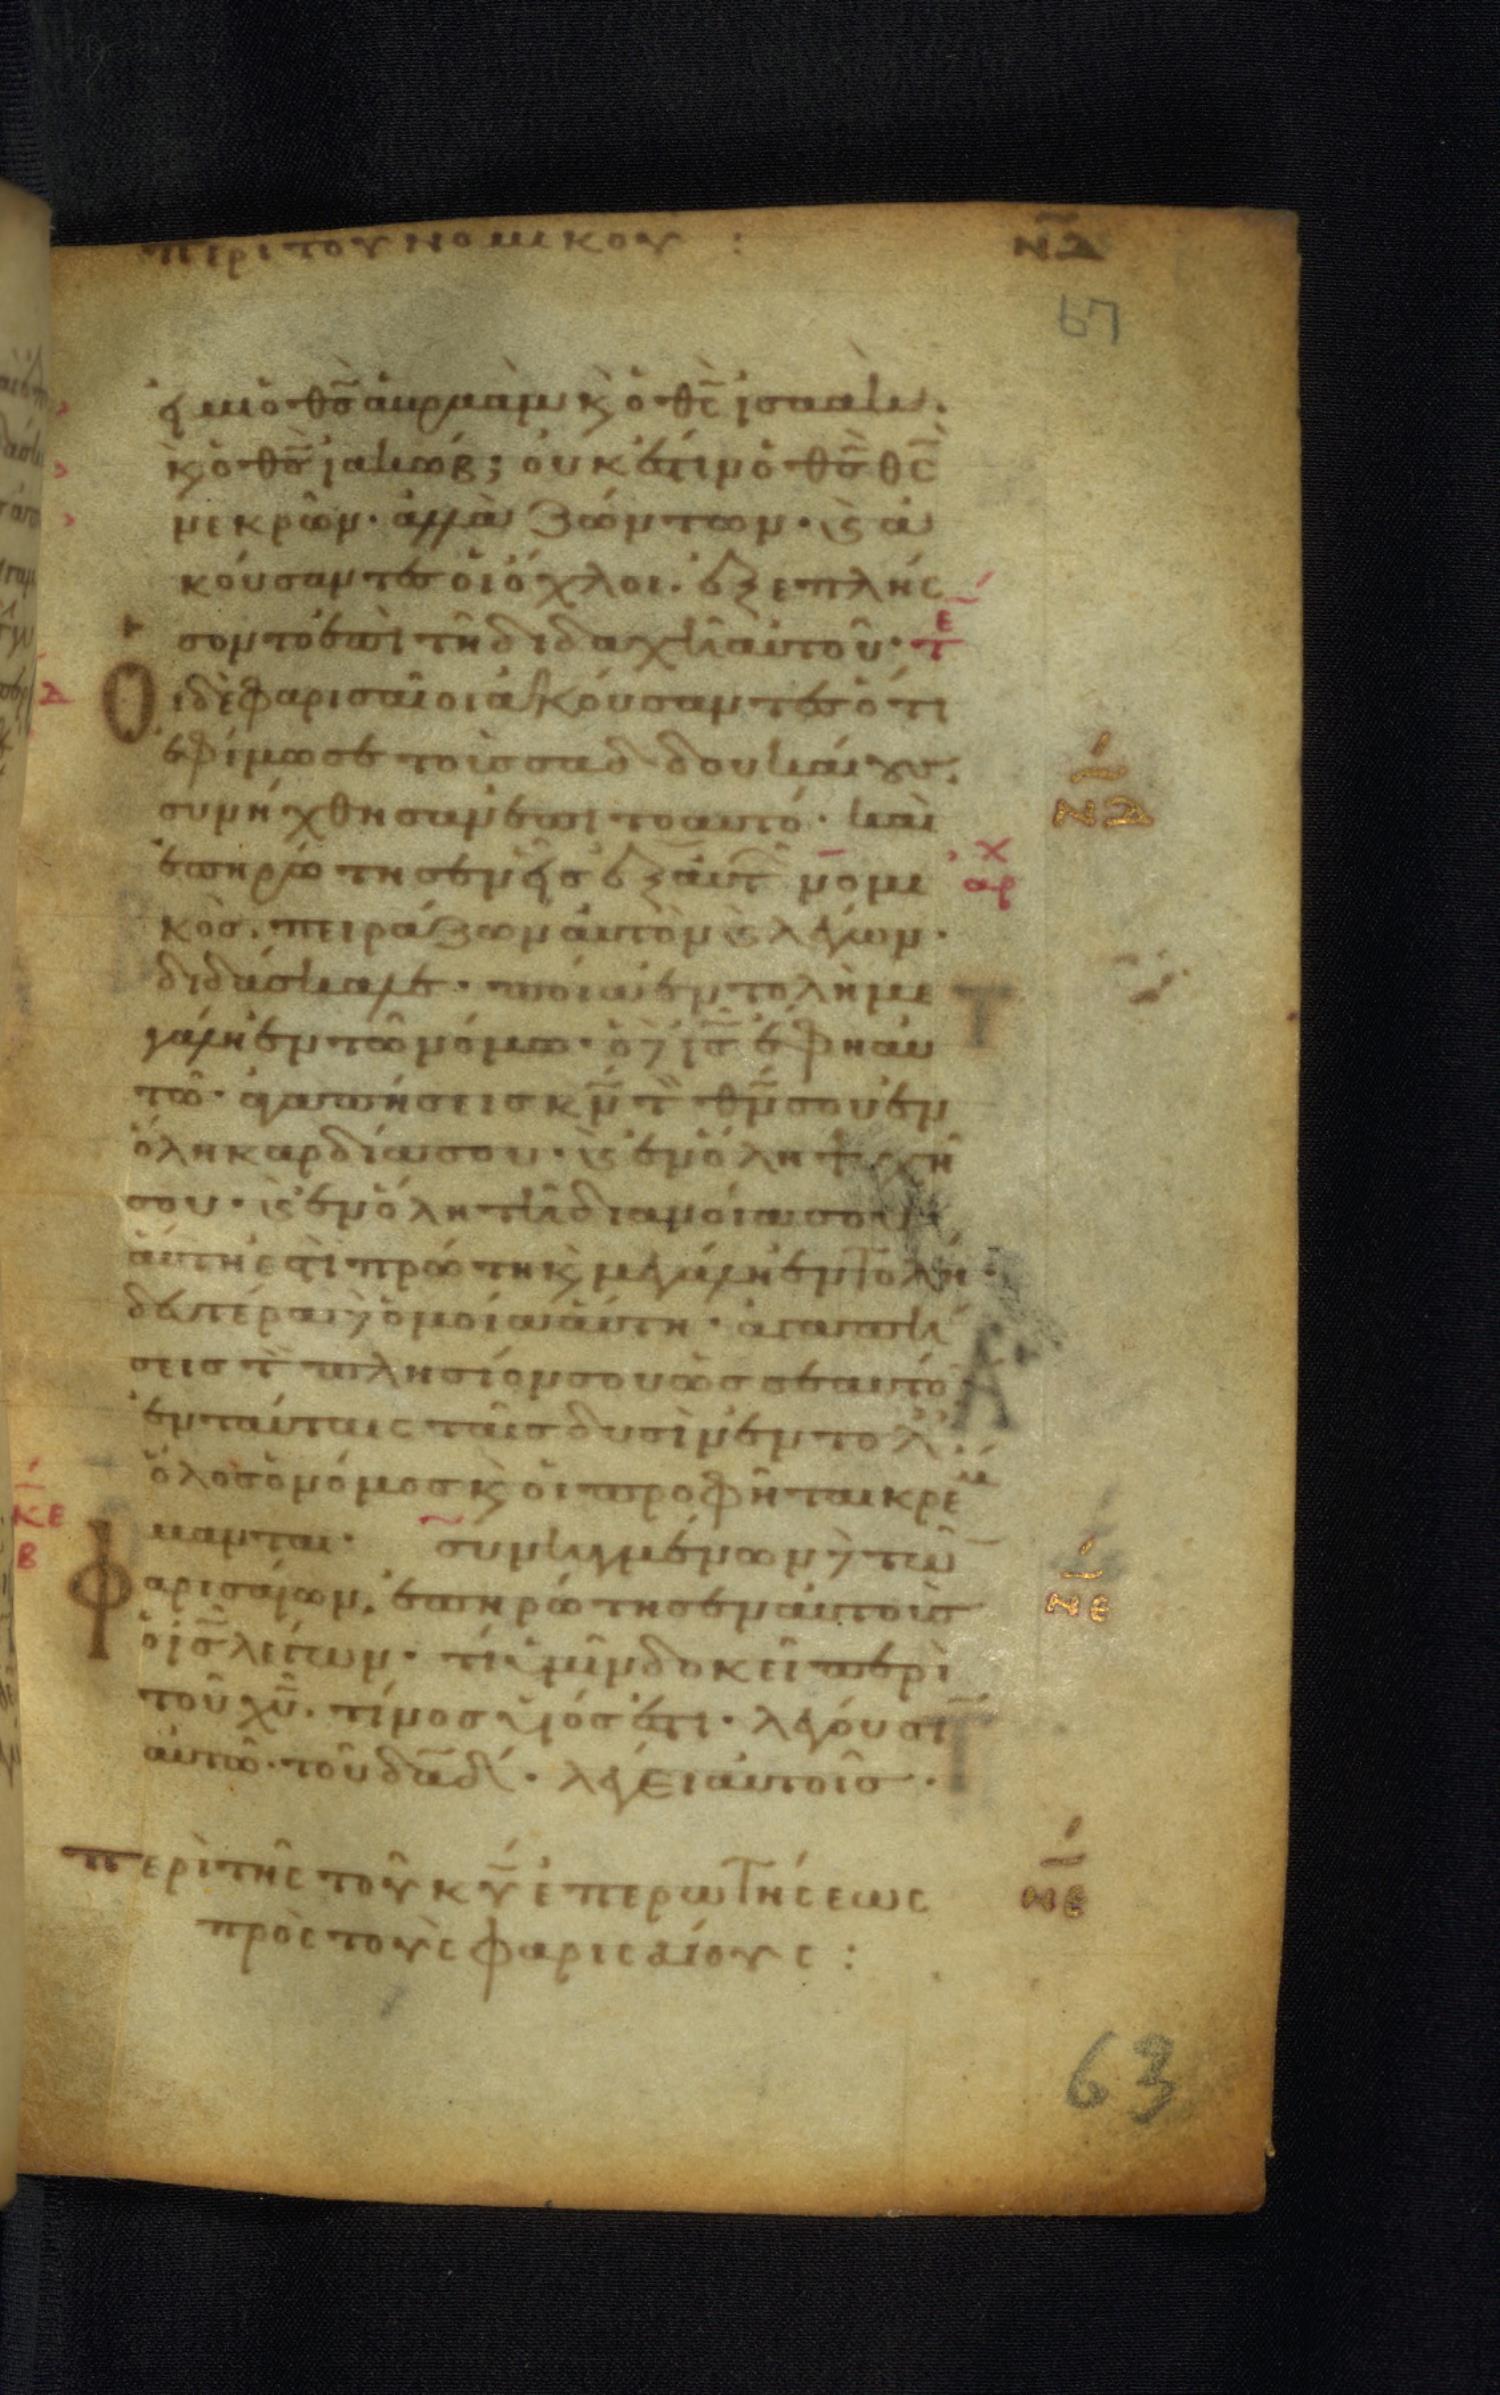 περι του νομικου : ν̅δ̅
67
ἐγώ εἰμι ὁ θ̅ς̅ ἀβραὰμ κ̀ ὁ θ̅ς̅ ἰσαάκ.
κ̀ ὁ θ̅ς̅ ἰακώβ; οὐκ ἔστιν ὁ θ̅ς̅ θ̅ς̅
νεκρῶν· ἀλλὰ ζώντων· κ̀ ἀ
κούσαντες οἱ ὄχλοι· ἐξεπλήσ
σοντο ἐπὶ τῆ διδαχῆ αὐτοῦ· τε̅
Οἱ δὲ φαρισαῖοι ἀκούσαντες ὅτι
ἐφίμωσε τοὺς σαδδουκαίους.
ν̅δ̅
συνήχθησαν ἐπὶ τὸ αυτό· καὶ
ἐπηρώτησεν εἷς ἐξ αὐτ̅ νομι
αρχ
κὸς. πειράζων αὐτὸν κ̀ λέγων·
διδάσκαλε· ποία ἐντολὴ με
γάλη ἐν τῶ νόμω· ὁ δὲ ι̅ς̅ ἔφη αυ
τῶ· ἀγαπήσεις κ̅ν̅ τ̀ θ̅ν̅ σου ἐν
ὅλη καρδία σου· κ̀ ἐν ὅλη ψυχῆ
σου· κ̀ ἐν ὅλη τῆ διανοία σου·
αὕτη ἐστὶ πρώτη κ̀ μεγάλη ἐντολή·
δευτέρα δὲ ὁμοία αὐτῆ· ἀγαπή
σεις τ̀ πλησίον σου ὡς σεαυτό
ἐν ταύταις ταῖς δυσὶν ἐντολ̀·
ὅλος ὁ νόμος κ̀ οἱ προφῆται κρέ
κ̅ε̅
β
μανται· συνηγμένων δὲ τῶ̅
Φαρισαίων. ἐπηρώτησεν αὐτοὺς
ν̅ε̅
ὁ ι̅ς̅ λέγων· τί ὑμῖν δοκεῖ περὶ
τοῦ χ̅υ̅. τίνος υἱός ἐστι· λέγουσι
αὐτῶ· τοῦ δα̅δ̅· λέγει αὐτοῖς·
περὶ τῆς τοῦ κ̅υ̅ ἐπερωτήσεως ν̅ε̅
πρὸς τοὺς φαρισαίους :
63